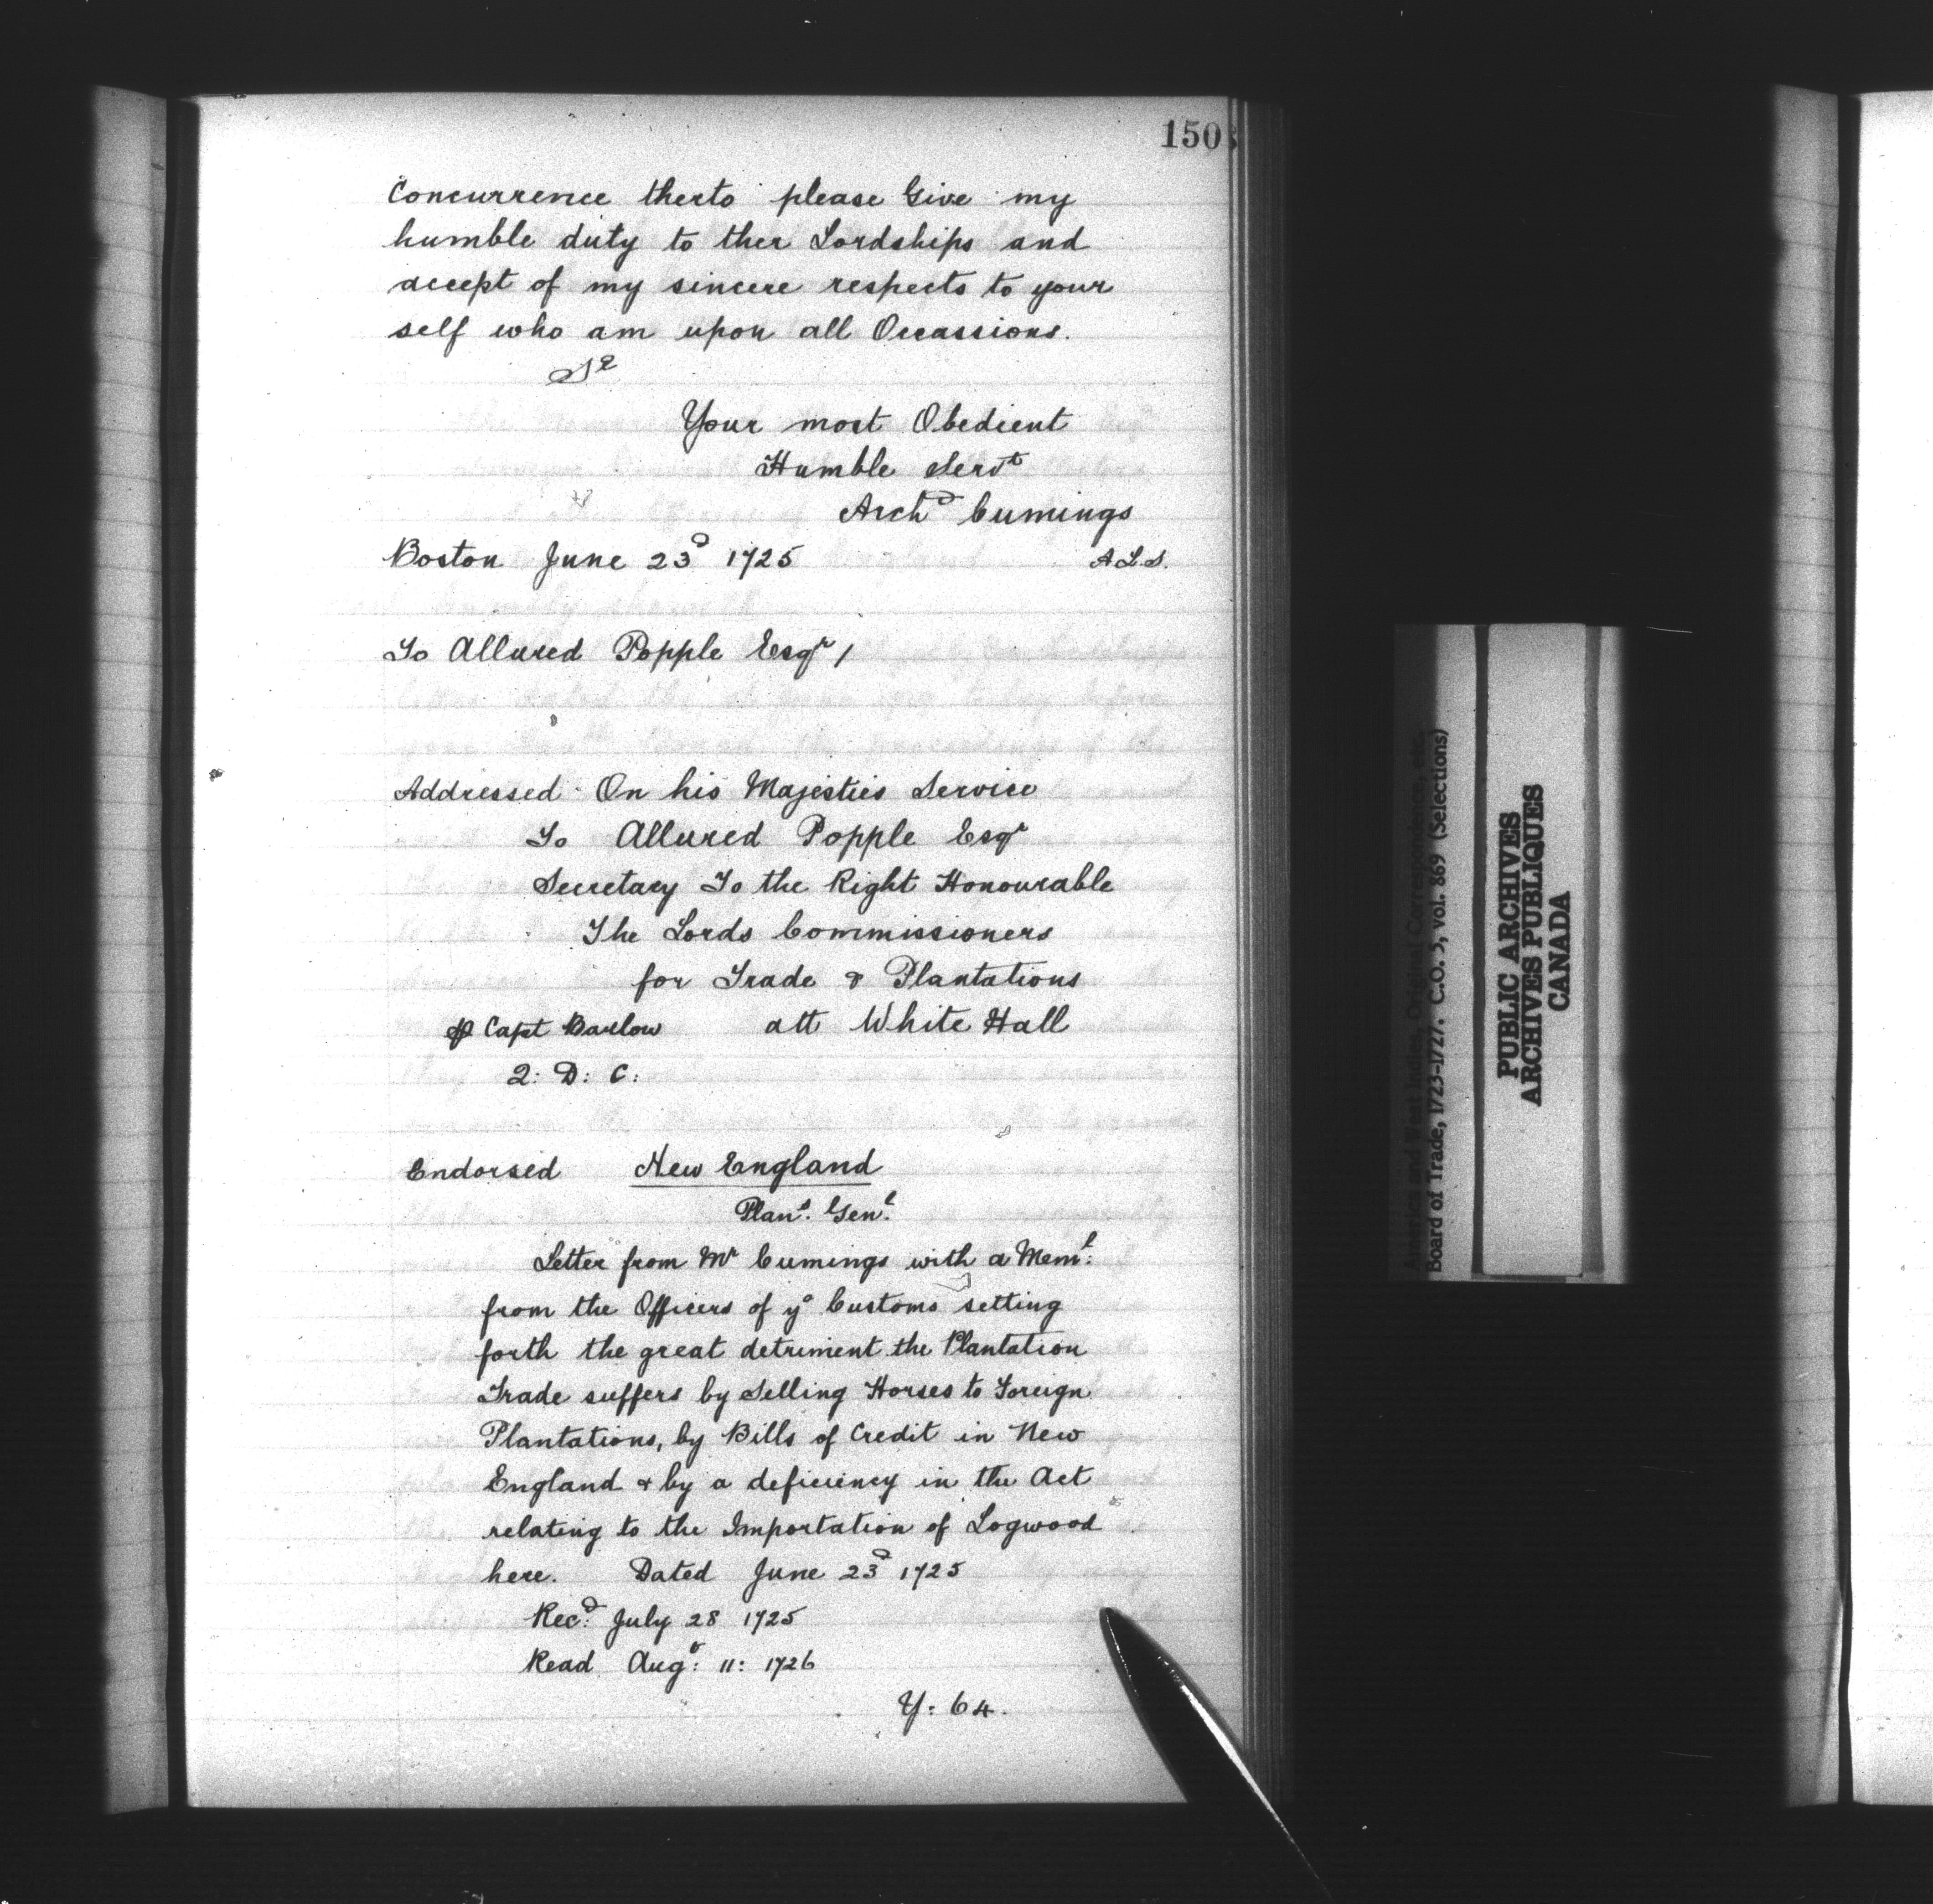 150
Concurrence therto please Give my
humble duty to ther Lordships and
accept of my sincere respects to your
self who am upon all Occassions.
Sr
Your most Obedient
Humble Servt
Archd Cumings
Boston June 23d 1725 A.L.S.
To Allured Popple Esqr /
Addressed On his Majesties Service
To Allured Popple Esqr
Secretary To the Right Honourable
The Lords Commissioners
for Trade & Plantations
Capt Barlow att White Hall
2: D: C:
Endorsed New England
Plans. Genl.
Letter from Mr Cumings with a Meml:
from the Officers of ye Customs setting
forth the great detriment the Plantation
Trade suffers by Selling Horses to Foreign
Plantations, by Bills of Credit in New
England & by a deficiency in the Act
relating to the Importation of Logwood
here. Dated June 23d 1725
Recd: July 28 1725
Read Augt: 11: 1726
Y: 64.
America and West Indies, Original Correspondence, etc.
Board of Trade, 1723-1727. C.O. 5, vol. 869 (Selections)
PUBLIC ARCHIVES
ARCHIVES PUBLIQUES
CANADA